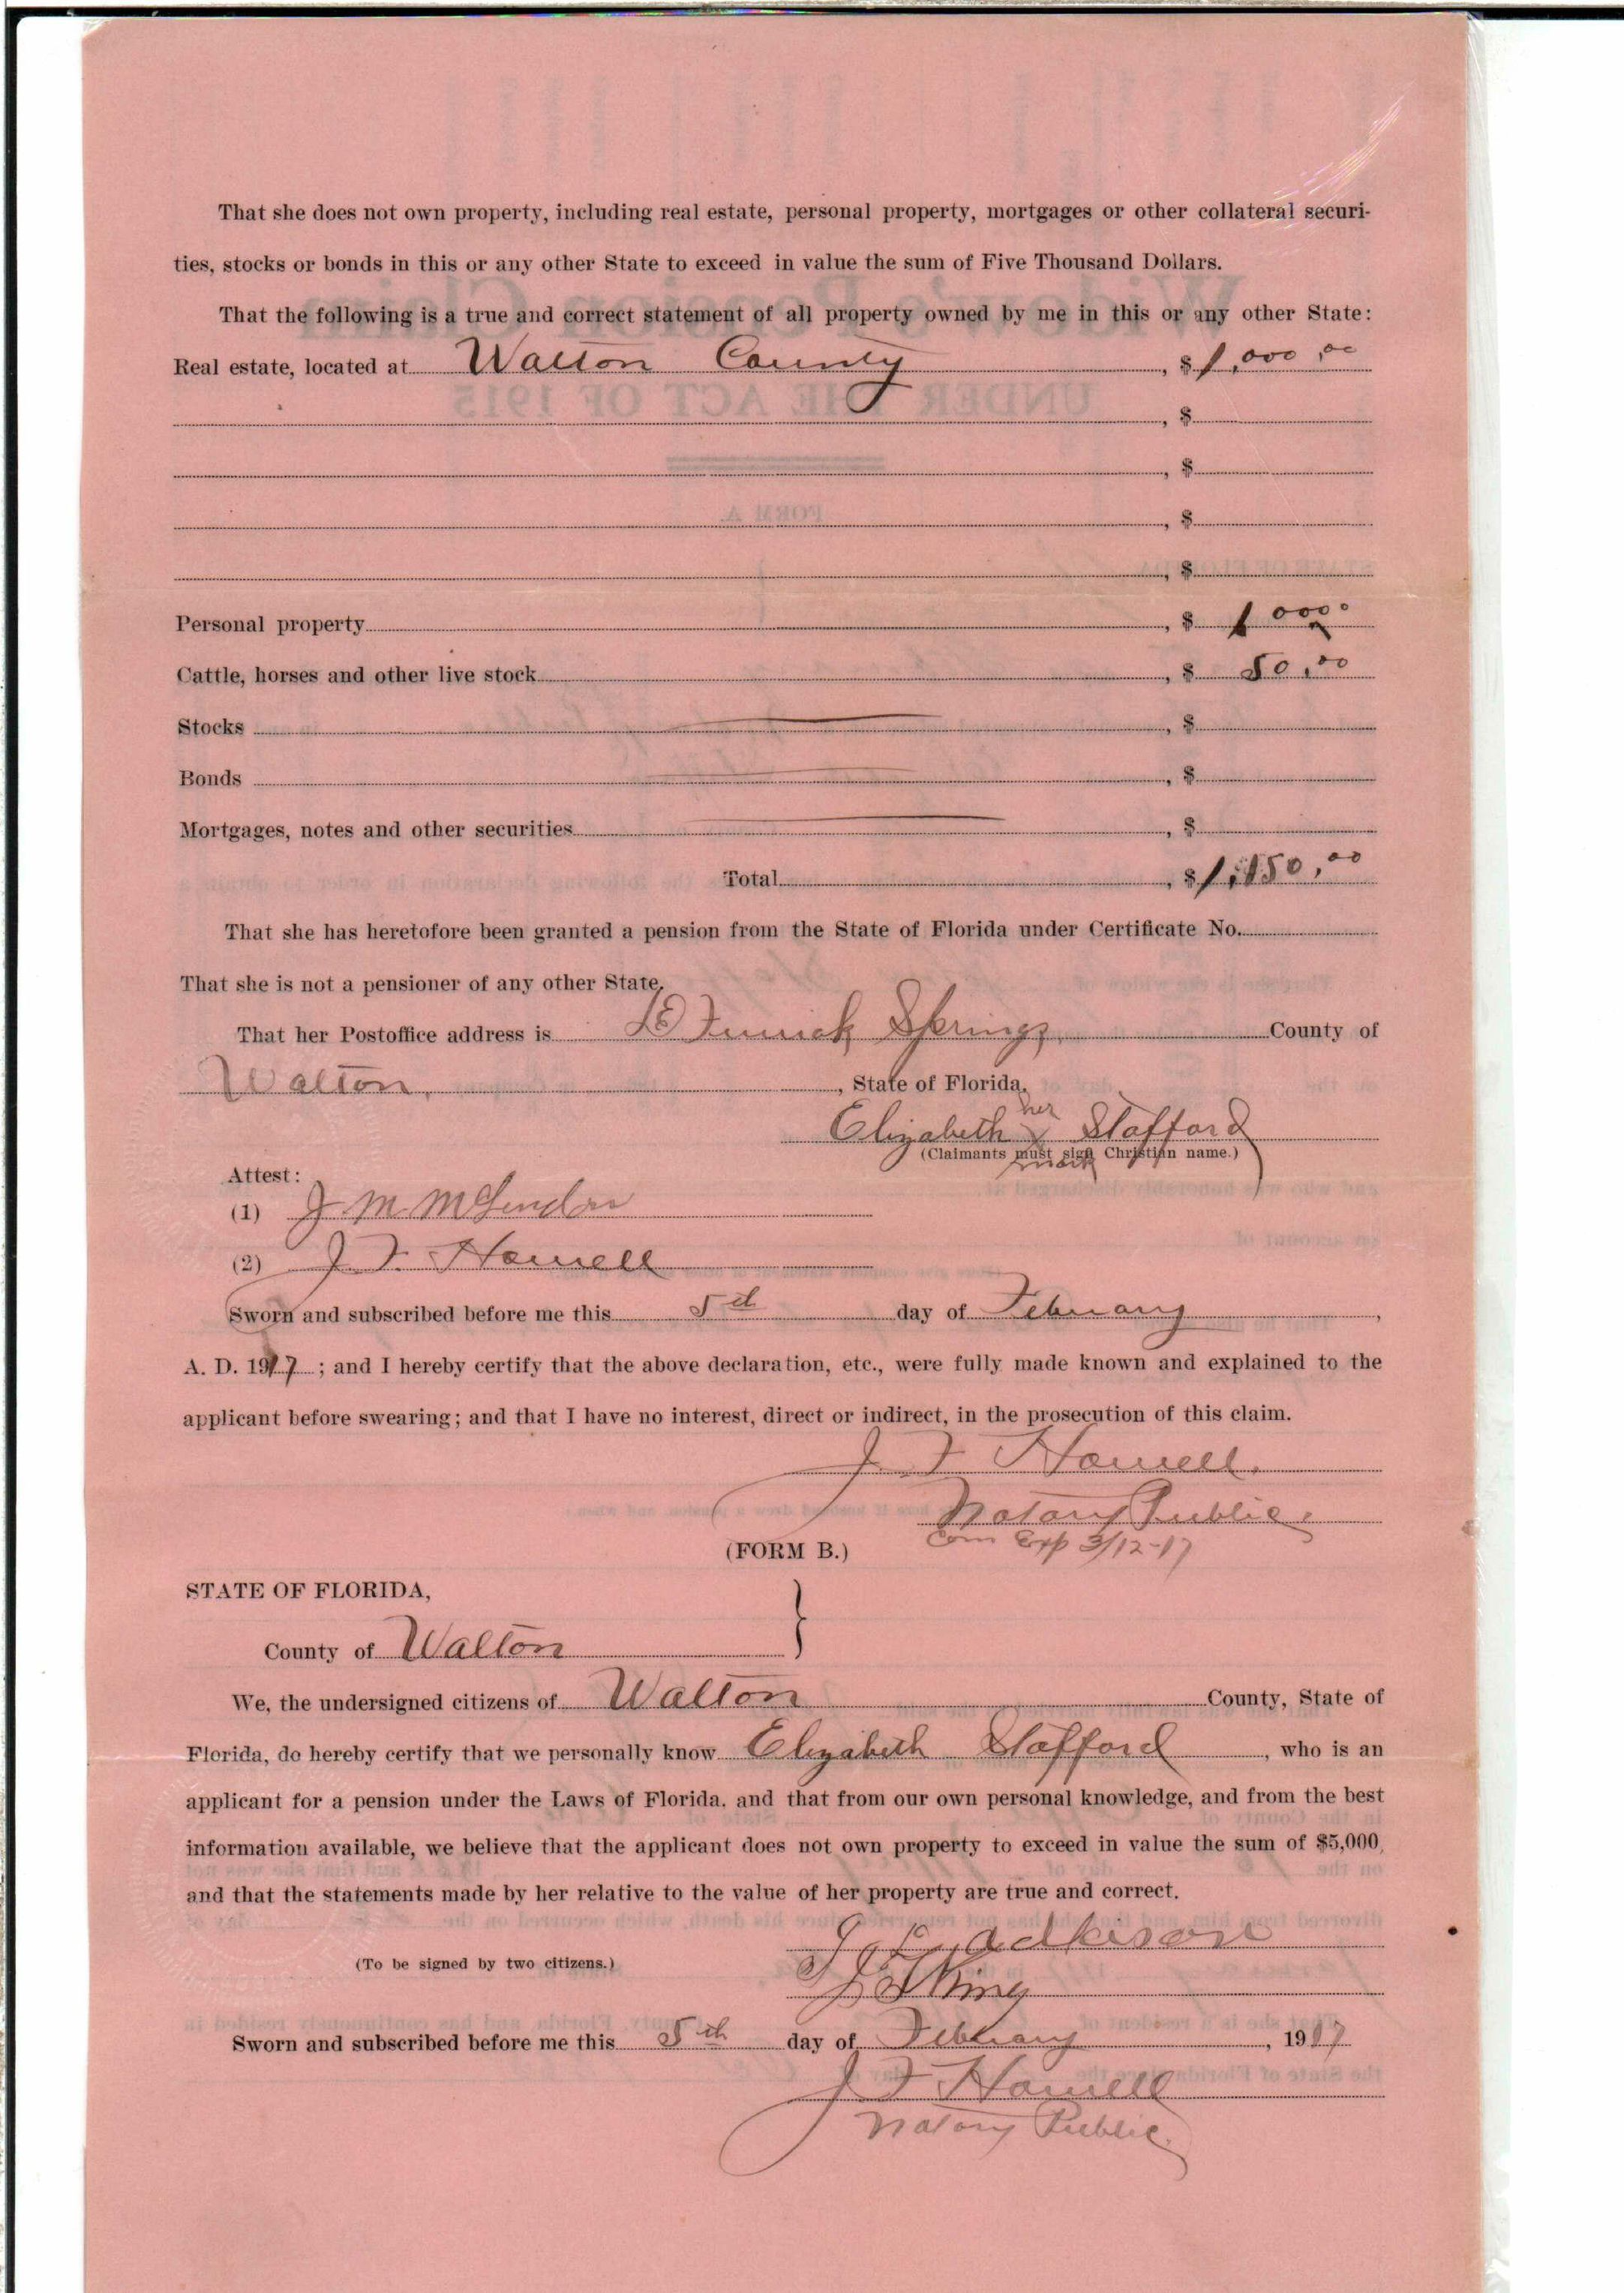 That she does not own property, including real estate, personal property, mortgages or other collateral securi-
ties, stocks or bonds in this or any other State to exceed in value the sum of Five Thousand Dollars.
That the following is a true and correct statement of all property owned by me in this or any other State:
Real estate, located at Walton County, $1,000.00
, $
, $
, $
, $
Personal property, $
Cattle, horses and other live stock, $ 50.00
Stocks, $
Bonds, $
Mortgages, notes and other securities, $
Total, $1,150.00
That she has heretofore been granted a pension from the State of Florida under Certificate No.
That she is not a pensioner of any other State.
That her Postoffice address is Springs, County of
Walton, State of Florida.
Elizabeth her x mark Stafford
(Claimants must sign Christian name.)
Attest:
(1) J M McLendon
(2) J. F. Howell
Sworn and subscribed before me this 5th day of February,
A. D. 1917; and I hereby certify that the above declaration, etc., were fully made known and explained to the
applicant before swearing; and that I have no interest, direct or indirect, in the prosecution of this claim.
J F Howell.
Notary Public.
Com Exp 3/12-17
(FORM B.)
STATE OF FLORIDA,
County of Walton
We, the undersigned citizens of Walton County, State of
Florida, do hereby certify that we personally know Elizabeth Stafford, who is an
applicant for a pension under the Laws of Florida. and that from our own personal knowledge, and from the best
information available, we believe that the applicant does not own property to exceed in value the sum of $5,000,
and that the statements made by her relative to the value of her property are true and correct.
Adkison
(To be signed by two citizens.)
King
Sworn and subscribed before me this 5th day of February, 1917
J F Howell
Notary Public.